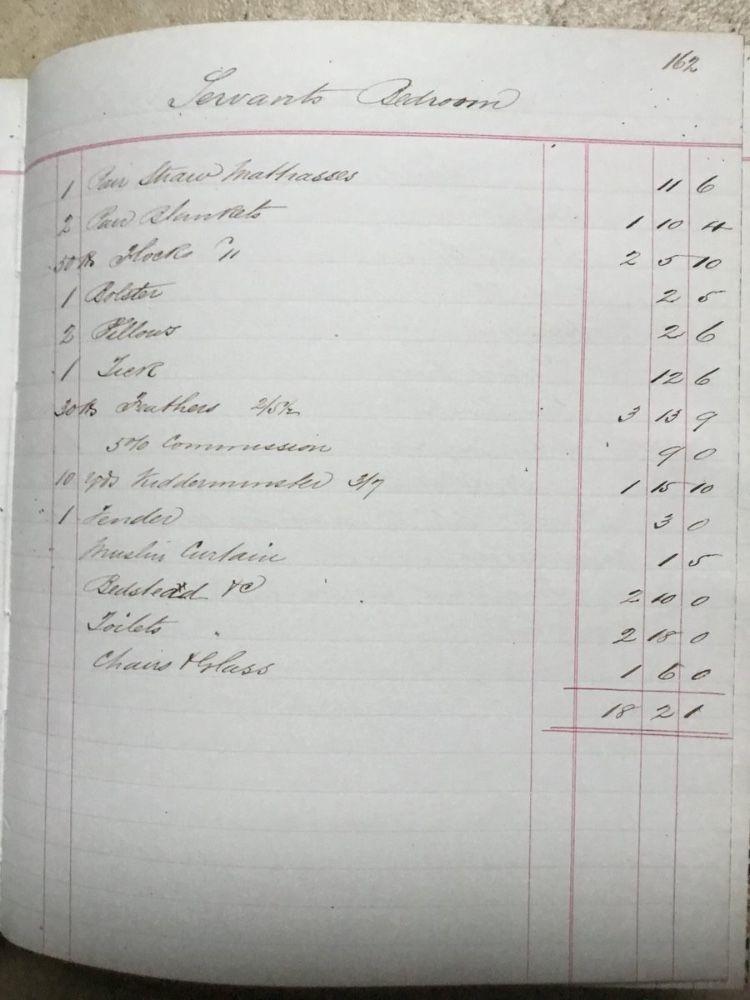 162
Servants Bedroom
1 Pair Straw Mattrasses 11 6
2 Pair Blankets 1 10 4
50 lb Flocks "/11 2 5 10
1 Bolster 2 5
2 Pillows 2 6
1 Tick 12 6
30 lb Feathers 2/5½ 3 13 9
5% Commission 9 0
10 yds Kidderminster 3/7 1 15 10
1 Fender 3 0
Muslin Curtain 1 5
Bedstead &c 2 10 0
Toilets 2 18 0
Chairs & Glass 1 6 0
18 2 1